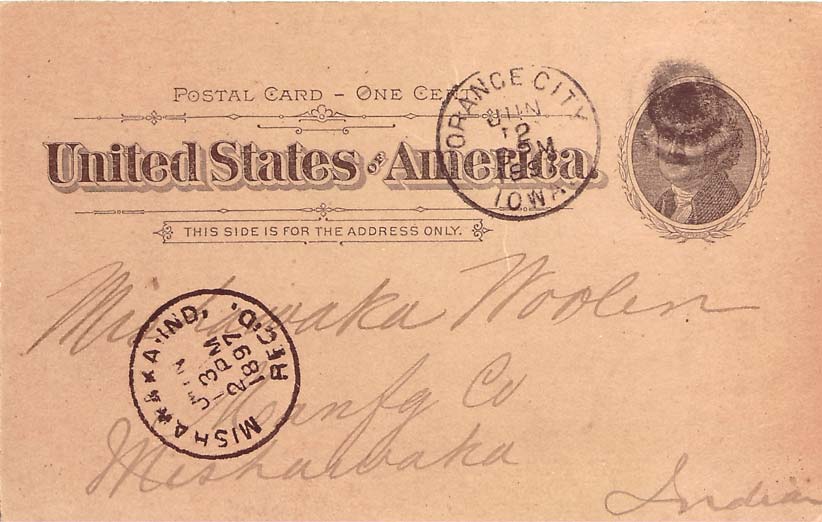 POSTAL CARD – ONE CENT
United States of America.
THIS SIDE IS FOR THE ADDRESS ONLY.
ORANGE CITY
JUN
12
5 PM
IOWA
Mishawaka Woolen
Manfg Co
Mishawaka
Indiana
MISHAWAKA·IND.
REC'D.
JUN
3 PM
1897